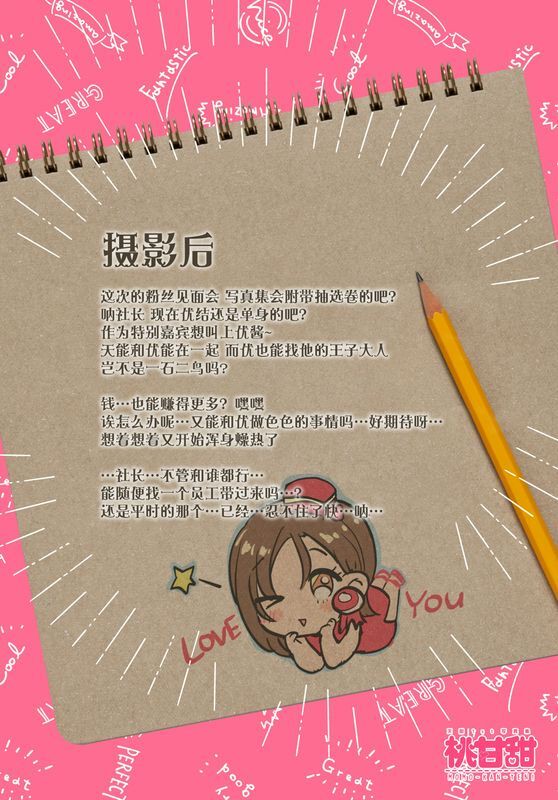 amazing
Cool
GREAT
Fantastic
amazing
Cool
GREAT
摄影后
这次的粉丝见面会 写真集会附带抽选卷的吧?
呐社长 现在优结还是单身的吧?
作为特别嘉宾想叫上优酱~
天能和优能在一起 而优也能找他的王子大人
岂不是一石二鸟吗?
钱…也能赚得更多? 嘿嘿
诶怎么办呢…又能和优做色色的事情吗…好期待呀…
想着想着又开始浑身燥热了
…社长…不管和谁都行…
能随便找一个员工带过来吗…?
还是平时的那个…已经…忍不住了快…呐…
LOVE
YOU
Cool
Fantastic
GREAT
PERFECT
good
Great
桃甘甜
MOMO-KAN-TENE